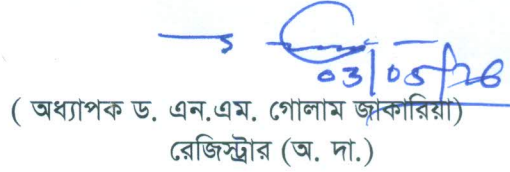 03/05/26
( অধ্যাপক ড. এন.এম. গোলাম জাকারিয়া)
রেজিস্ট্রার (অ. দা.)